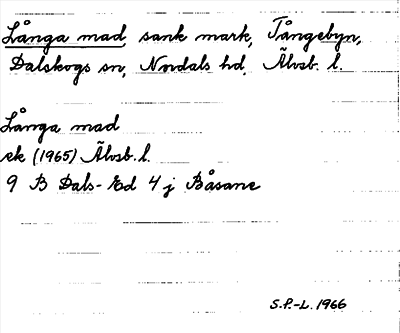 Långa mad, sank mark, Tångebyn,
Dalskogs sn, Nordals hd, Älvsb. l.
Långa mad
ek (1965) Älvsb. l.
9 B Dals-Ed 4 j Båsane
S.P.-L. 1966